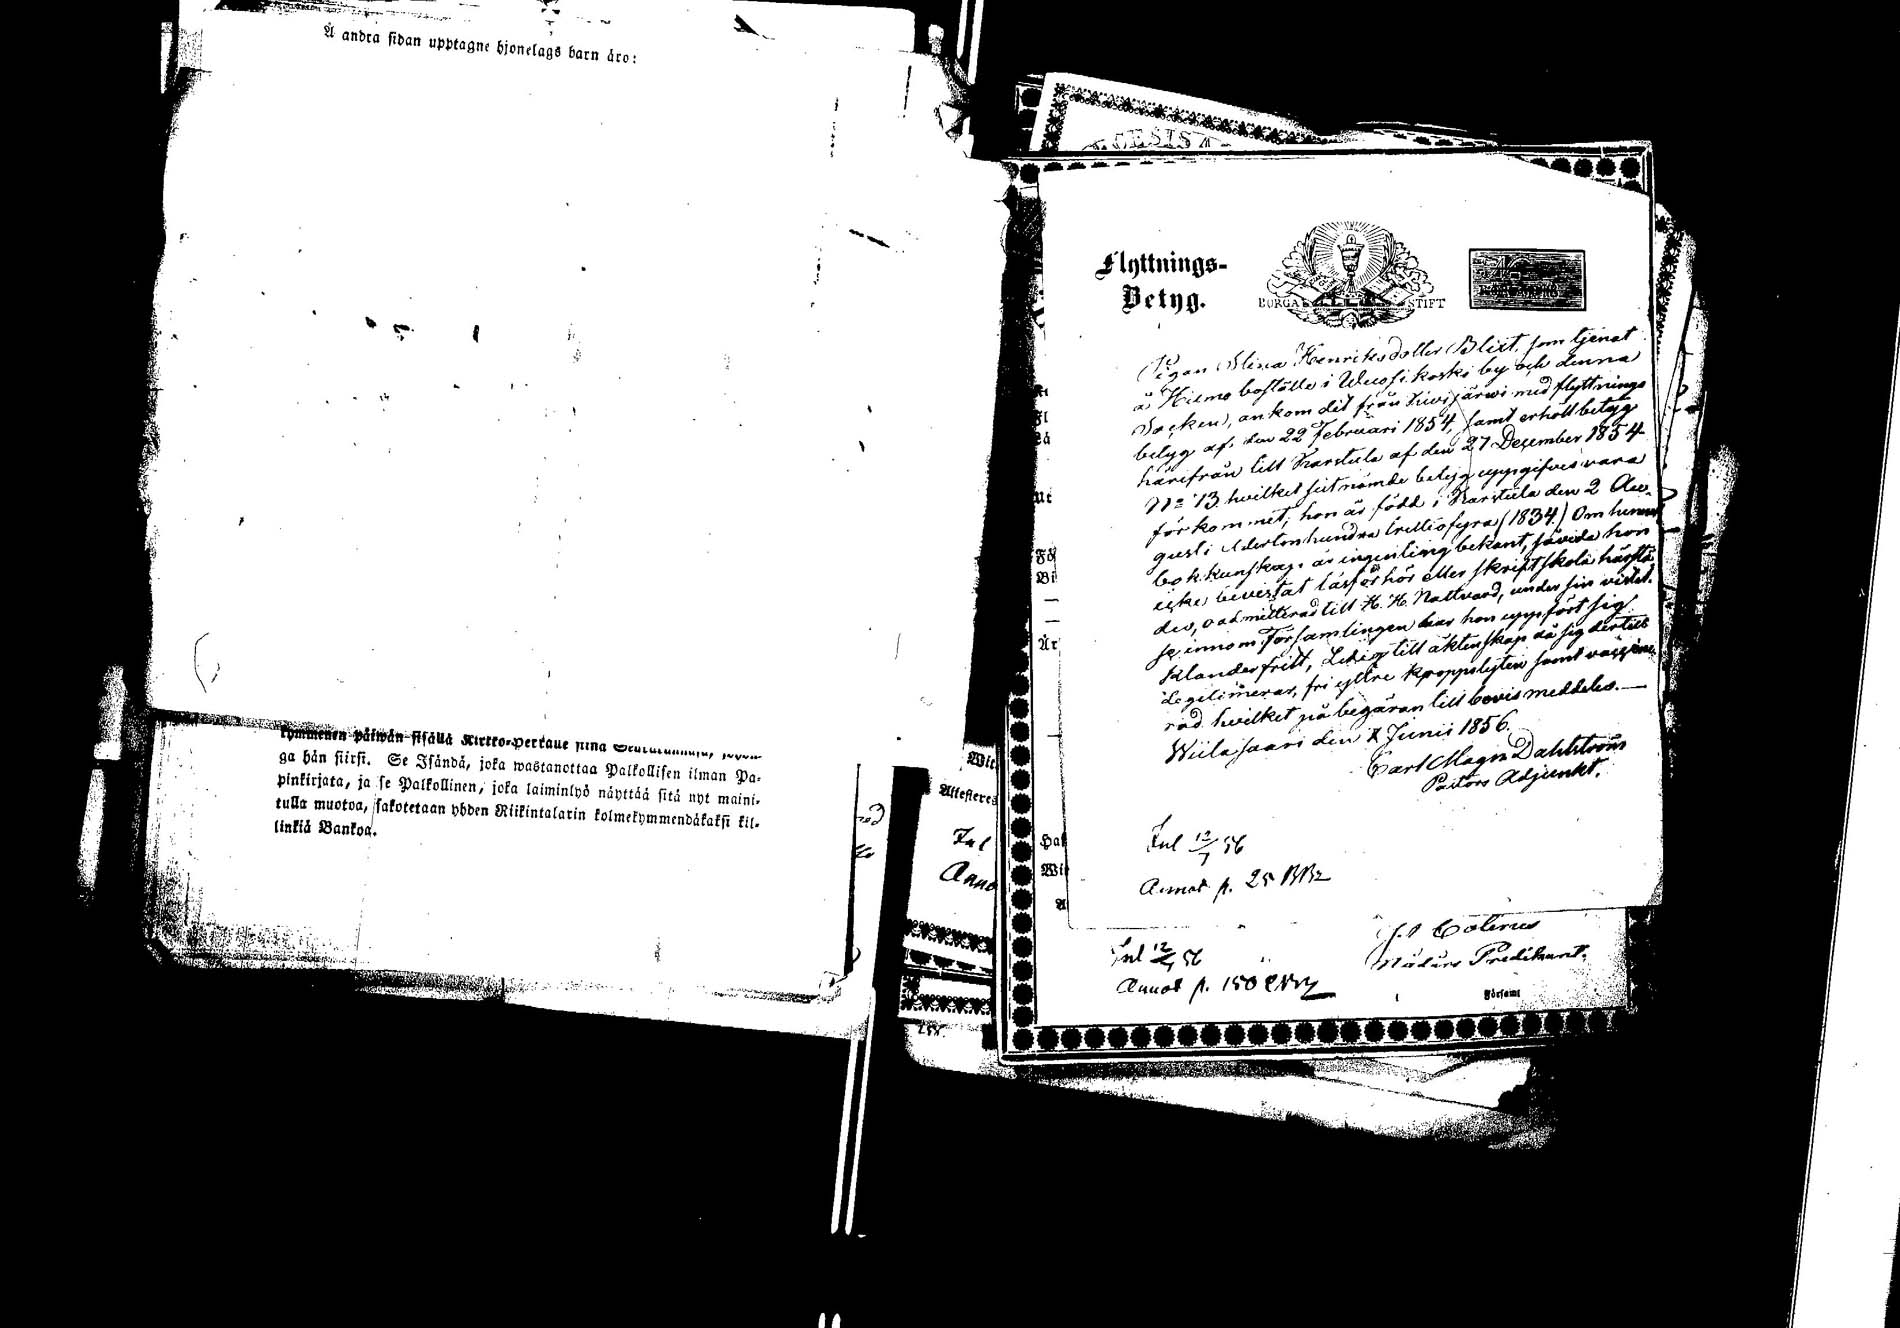 Å andra sidan upptagne hjonelags barn äro:
kymmenen päiwän sisällä Kirkko-Herralle siinä
ga hän siirsi. Se Isändä, joka wastanottaa Palkollisen ilman Pa-
pinkirjata, ja se Palkollinen, joka laiminlyö näyttää sitä nyt maini-
tulla muotoa, sakotetaan yhden Riikintalarin kolmekymmendäkaksi kil-
linkiä Bankoa.
Flyttnings-
Betyg.
BORGÅ STIFT
Pigan Stina Henriksdotter Blixt, som tjenat
å Hiemo boställe i Wuosikoski by och denna
Socken, ankom dit från Kivijärwi med flyttnings
betyg af den 22 Februari 1854, samt erhöll betyg
härifrån till Karstula af den 27 December 1854
No 13 hvilket sistnämde betyg uppgifves vara
förkommet; hon är född i Karstula den 2 Au-
gusti Adertonhundra trettiofyra (1834.) Om hennes
bokkunskap är ingenting bekant, såvida hon
icke bevistat läsförhör eller skriftskola härstä-
des, oadmitterad till H. H. Nattvard, under sin vistel-
se innom Församlingen har hon uppfört sig
klanderfritt, Ledig till äktenskap då sig dertill
legitimerar, fri yttre kroppslyten samt
rad hvilket på begäran till bevis meddelas.—
Wiitasaari den 7 Junii 1856.
Carl Magn Dahlström
Pastors Adjunkt.
Inl 12/7 56
Annot p. 25
Wit
Attesteres
Inl
Anno
Inl 12/7 56
Annot p. 150
Colerus
Nådårs Predikant.
Församl